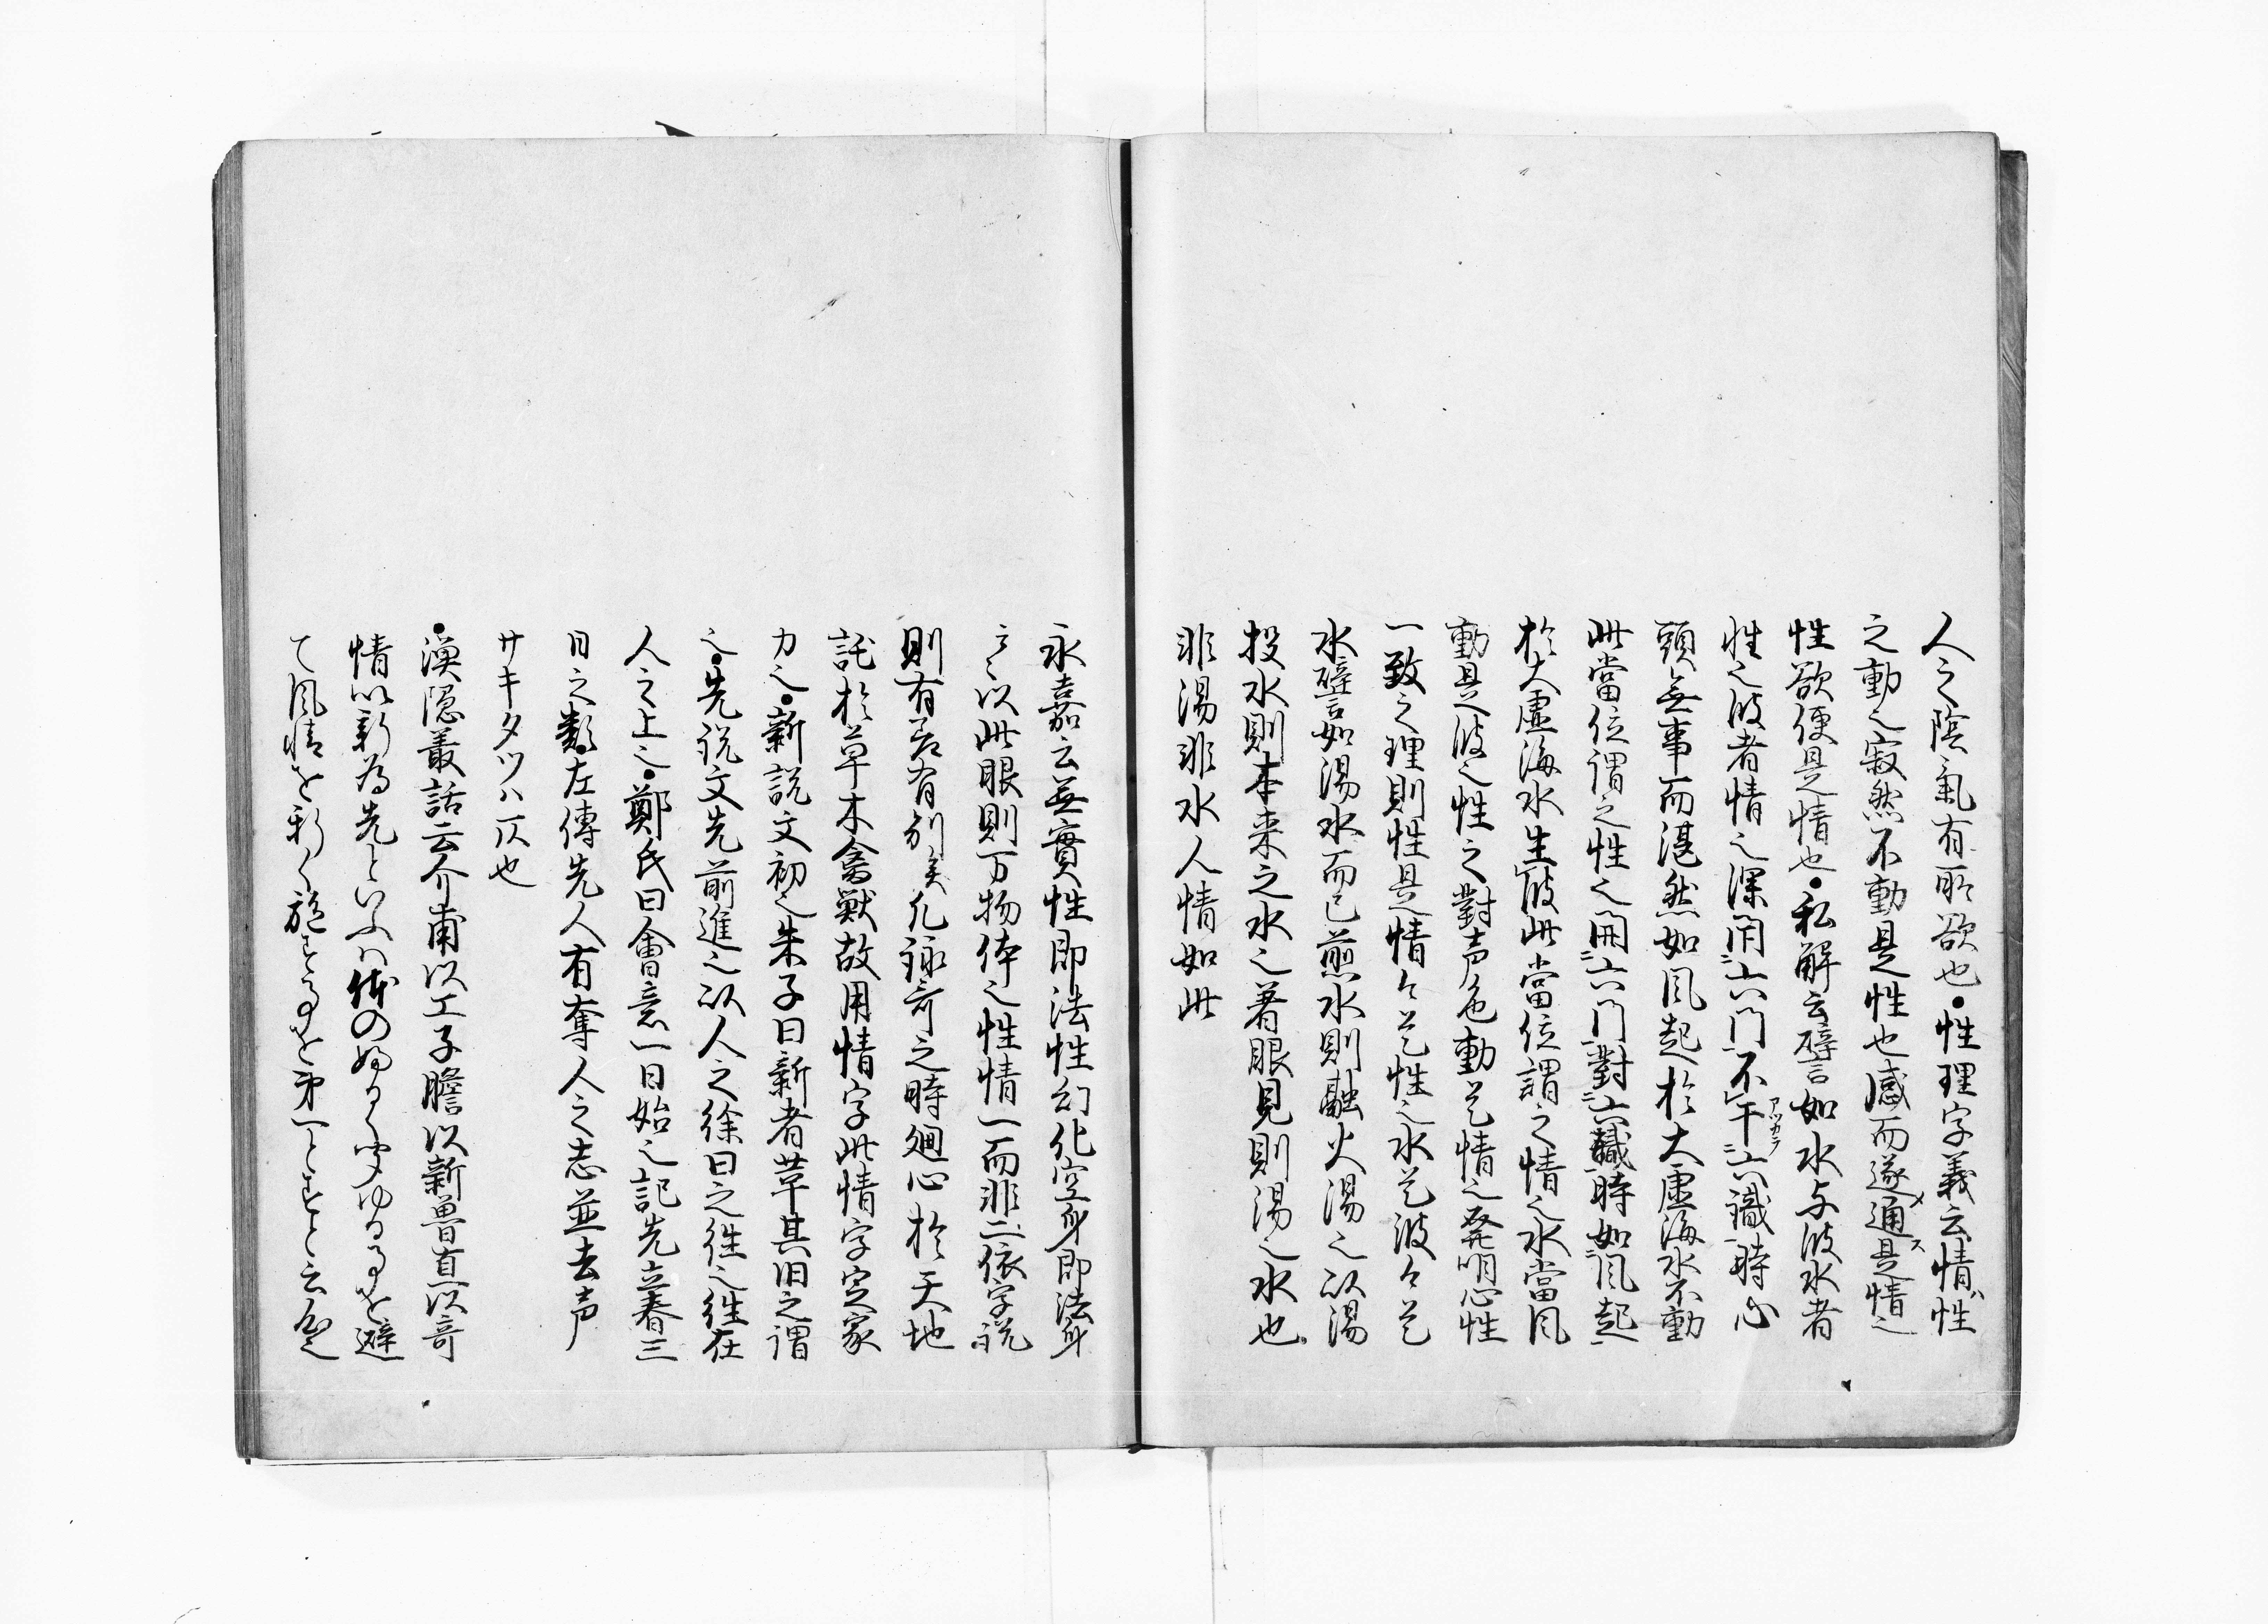 人之陰氣有所欲也●性理字義云情ハ性
之動也寂然不動是性也感而遂通是情也
性欲便是情也●私解云譬如水与波水者
性也波者情也深閇六門不干六識時心
頭無事而湛然如風起於大虚海水不動
此當位謂之性也開六門對六識時如風起
於大虚海水生波此當位謂之情也水當風
動是波也性之對声色動是情也発明心性
一致之理則性是情々是性也水是波々是
水譬如湯水而已煎水則融火湯也以湯
投水則本来之水也著眼見則湯也水也
非湯非水人情如此
永嘉云無實性即法性幻化空身即法身
云々以此眼則万物体之性情一而非二依字説
則有差有別矣凡詠哥之時廻心於天地
託於草木禽獣故用情字此情字定家
力也●新説文初也朱子曰新者革其旧之謂
也●先説文先前進也以人之徐曰之徃也徃在
人之上也●鄭氏曰會意一曰始也記先立春三
日之類左傳先人有奪人之志並去声
サキタツハ仄也
●漁隠叢話云介甫以工子瞻以新魯直以奇
情以新為先といふハ体のふるく聞ゆる事を避
て風情を新く旋する事を第一とすと云心也